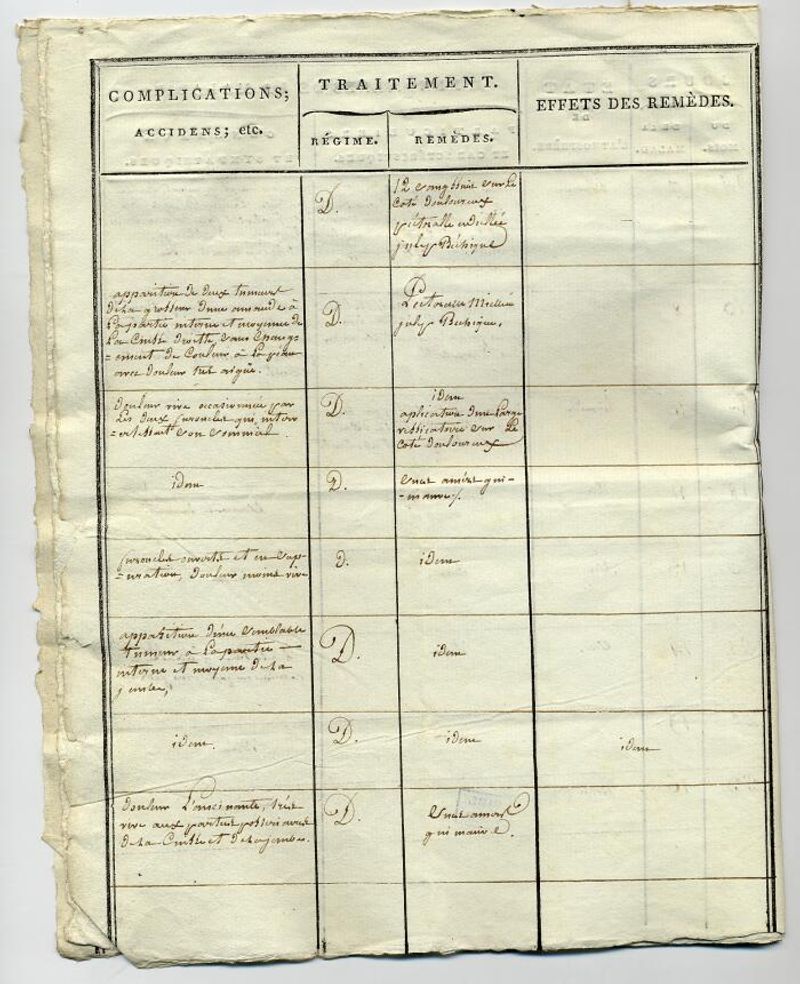 COMPLICATIONS;
ACCIDENS; etc.
TRAITEMENT.
RÉGIME.
REMÈDES.
EFFETS DES REMÈDES.
D.
12 sur Le
Coté douloureux
julep Béchique
apparition de deux tumeurs
de la grosseur d'une amande à
La partie interne et moyenne de
La Cuisse droite, sans
ement de Couleur à La peau
avec douleur tres aigüe.
D.
Pectorale Miellée
julep Bechique.
douleur vive occasionnée par
Les deux furoncles qui inter
son sommeil.
D.
idem
aplication d'une Large
vessicatoire sur Le
Coté douloureux
idem
D.
furoncles ouverts et en Sup-
=uration, douleur moins vive
D.
idem
apparition d'une Semblable
Tumeur à La partie
interne et moyenne de La
D.
idem
idem.
D.
idem
idem
douleur Lancinante, très
vive aux parties posterieures
de La Cuisse et de La jambe.
D.